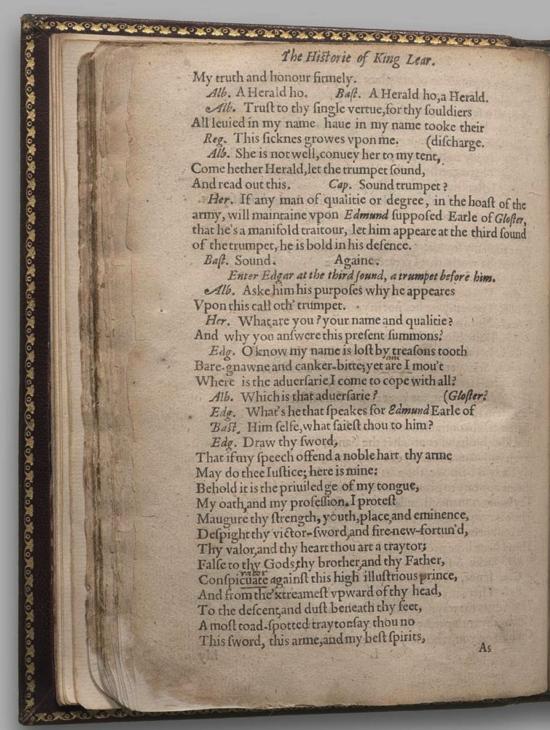 The Historie of King Lear.
My truth and honour firmely.
Alb. A Herald ho. Bast. A Herald ho, a Herald.
Alb. Trust to thy single vertue, for thy souldiers
All leuied in my name haue in my name tooke their
Reg. This sicknes growes vpon me. (discharge.
Alb. She is not well, conuey her to my tent,
Come hether Herald, let the trumpet sound,
And read out this. Cap. Sound trumpet?
Her. If any man of qualitie or degree, in the hoast of the
army, will maintaine vpon Edmund supposed Earle of Gloster,
that he's a manifold traitour, let him appeare at the third sound
of the trumpet, he is bold in his defence.
Bast. Sound. Againe.
Enter Edgar at the third sound, a trumpet before him.
Alb. Aske him his purposes why he appeares
Vpon this call oth' trumpet.
Her. What are you? your name and qualitie?
And why you answere this present summons?
Edg. O know my name is lost by treasons tooth
Bare-gnawne and canker-bitte; yet are I mou't
Where is the aduersarie I come to cope with all?
Alb. Which is that aduersarie? (Gloster?
Edg. What's he that speakes for Edmund Earle of
Bast. Him selfe, what saiest thou to him?
Edg. Draw thy sword,
That if my speech offend a noble hart thy arme
May do thee Iustice; here is mine:
Behold it is the priuiledge of my tongue,
My oath, and my profession. I protest
Maugure thy strength, youth, place, and eminence,
Despight thy victor-sword, and fire-new-fortun'd,
Thy valor, and thy heart thou art a traytor;
False to thy Gods, thy brother, and thy Father,
Conspicuate against this high illustrious prince,
And from the'xtreamest vpward of thy head,
To the descent, and dust beneath thy feet,
A most toad-spotted traytor say thou no
This sword, this arme, and my best spirits,
As